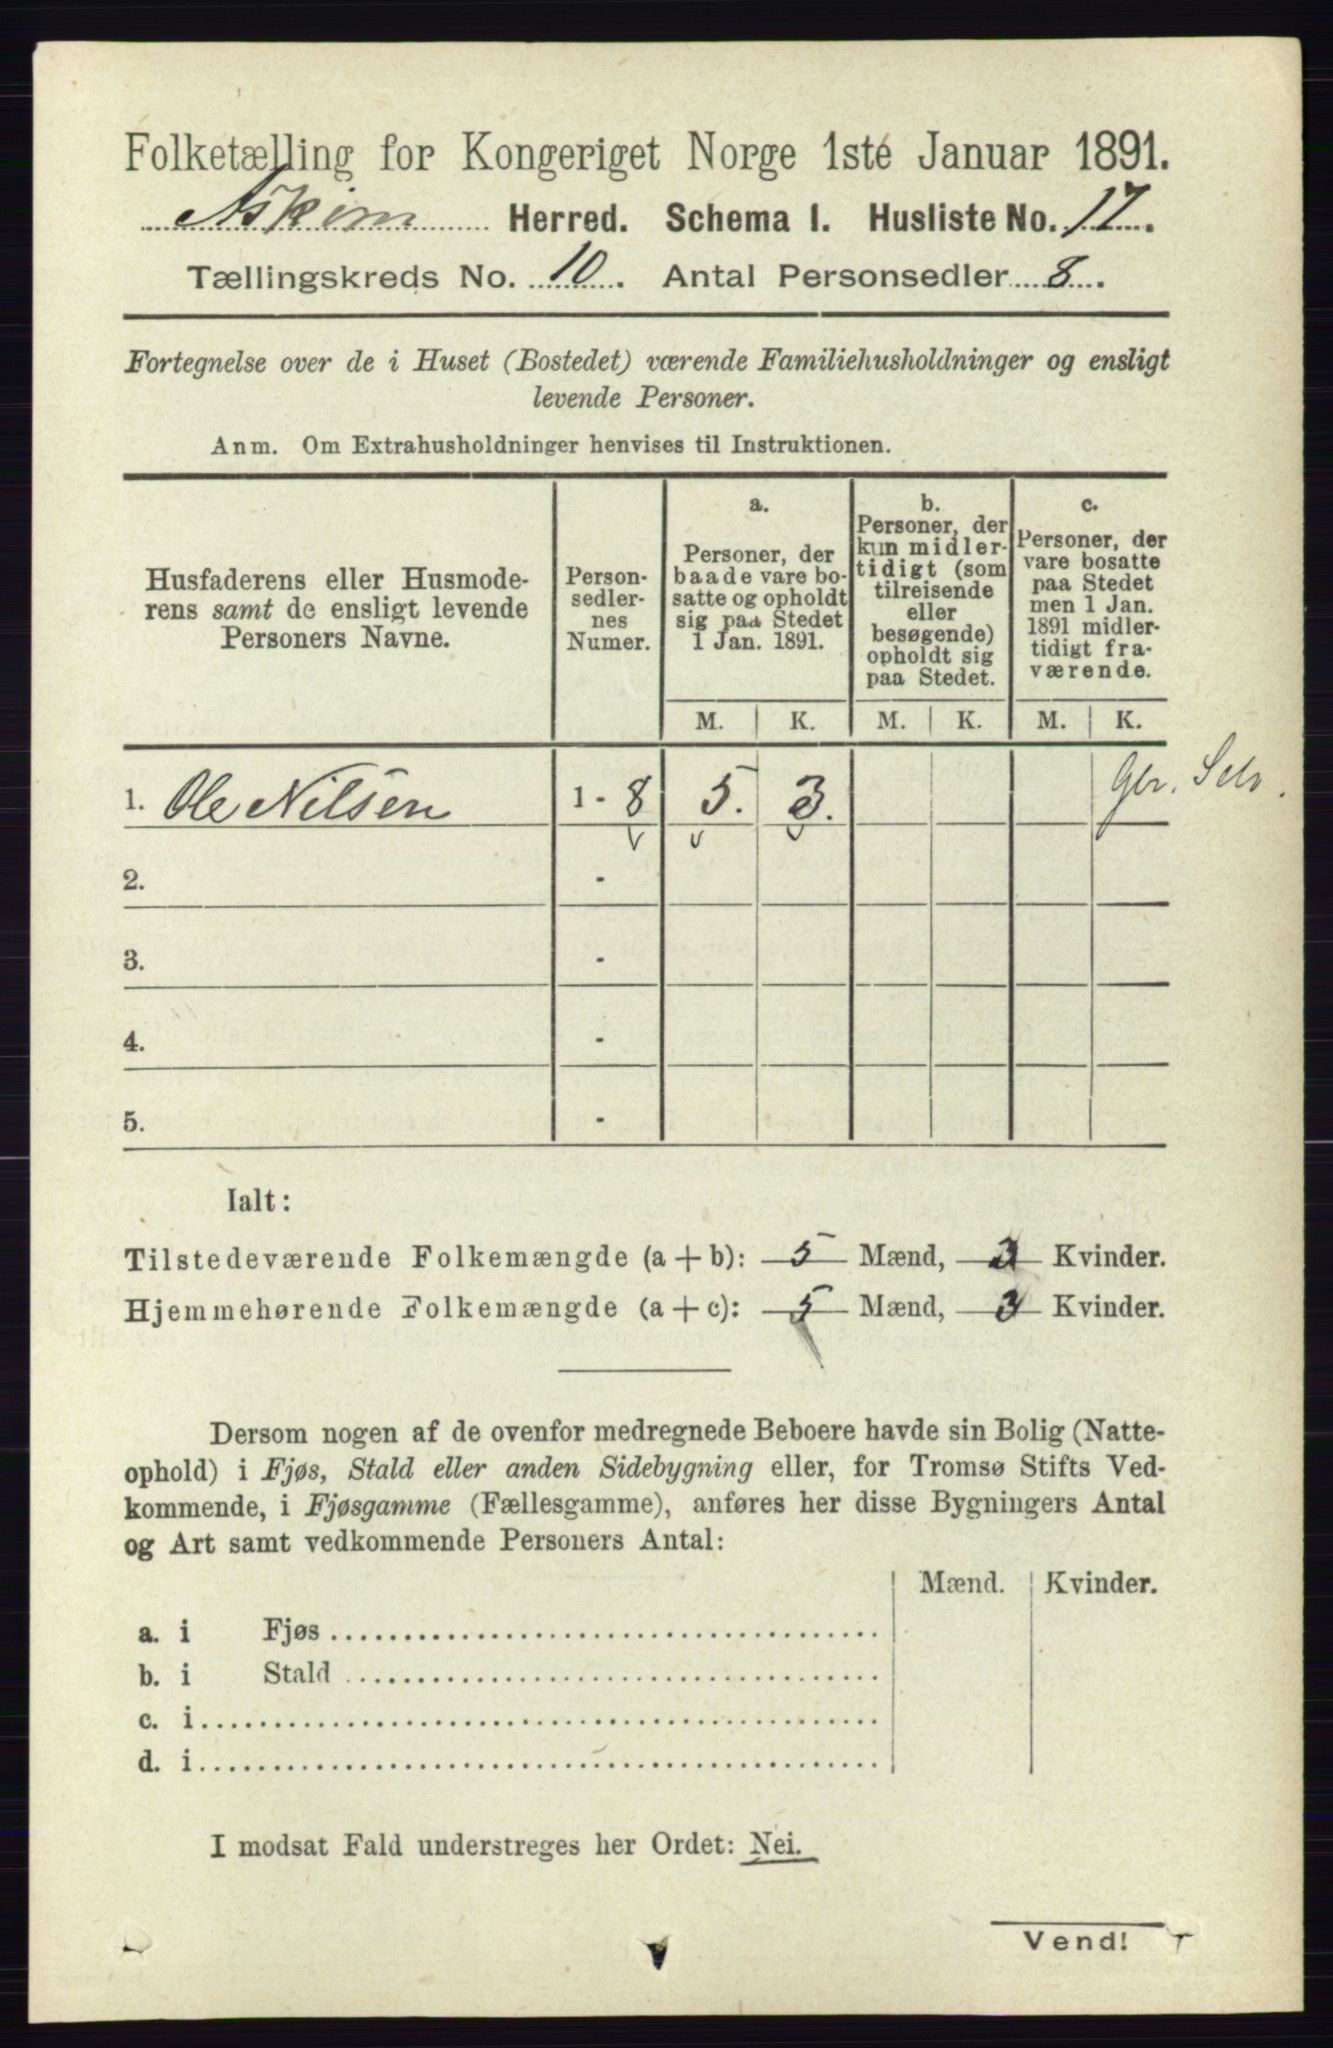 Folketælling for Kongeriget Norge 1ste Januar 1891.
Askim Herred. Schema I. Husliste No. 17.
Tællingskreds No. 10. Antal Personsedler 8.
Fortegnelse over de i Huset (Bostedet) værende Familiehusholdninger og ensligt
levende Personer.
Anm. Om Extrahusholdninger henvises til Instruktionen.
Husfaderens eller Husmode-
rens samt de ensligt levende
Personers Navne.
Person-
sedler-
nes
Numer.
a.
Personer, der
baade vare bo-
satte og opholdt
sig paa Stedet
1 Jan. 1891.
b.
Personer, der
kun midler-
tidigt (som
tilreisende
eller
besøgende)
opholdt sig
paa Stedet.
c.
Personer, der
vare bosatte
paa Stedet
men 1 Jan.
1891 midler-
tidigt fra-
værende.
M. K. M. K. M. K.
1. Ole Nilsen 1 - 8 5. 3. Gbr. Selv.
2. -
3. -
4. -
5. -
Ialt:
Tilstedeværende Folkemængde (a + b): 5 Mænd, 3 Kvinder.
Hjemmehørende Folkemængde (a + c): 5 Mænd, 3 Kvinder.
Dersom nogen af de ovenfor medregnede Beboere havde sin Bolig (Natte-
ophold) i Fjøs, Stald eller anden Sidebygning eller, for Tromsø Stifts Ved-
kommende, i Fjøsgamme (Fællesgamme), anføres her disse Bygningers Antal
og Art samt vedkommende Personers Antal:
Mænd. Kvinder.
a. i Fjøs
b. i Stald
c. i
d. i
I modsat Fald understreges her Ordet: Nei.
Vend!